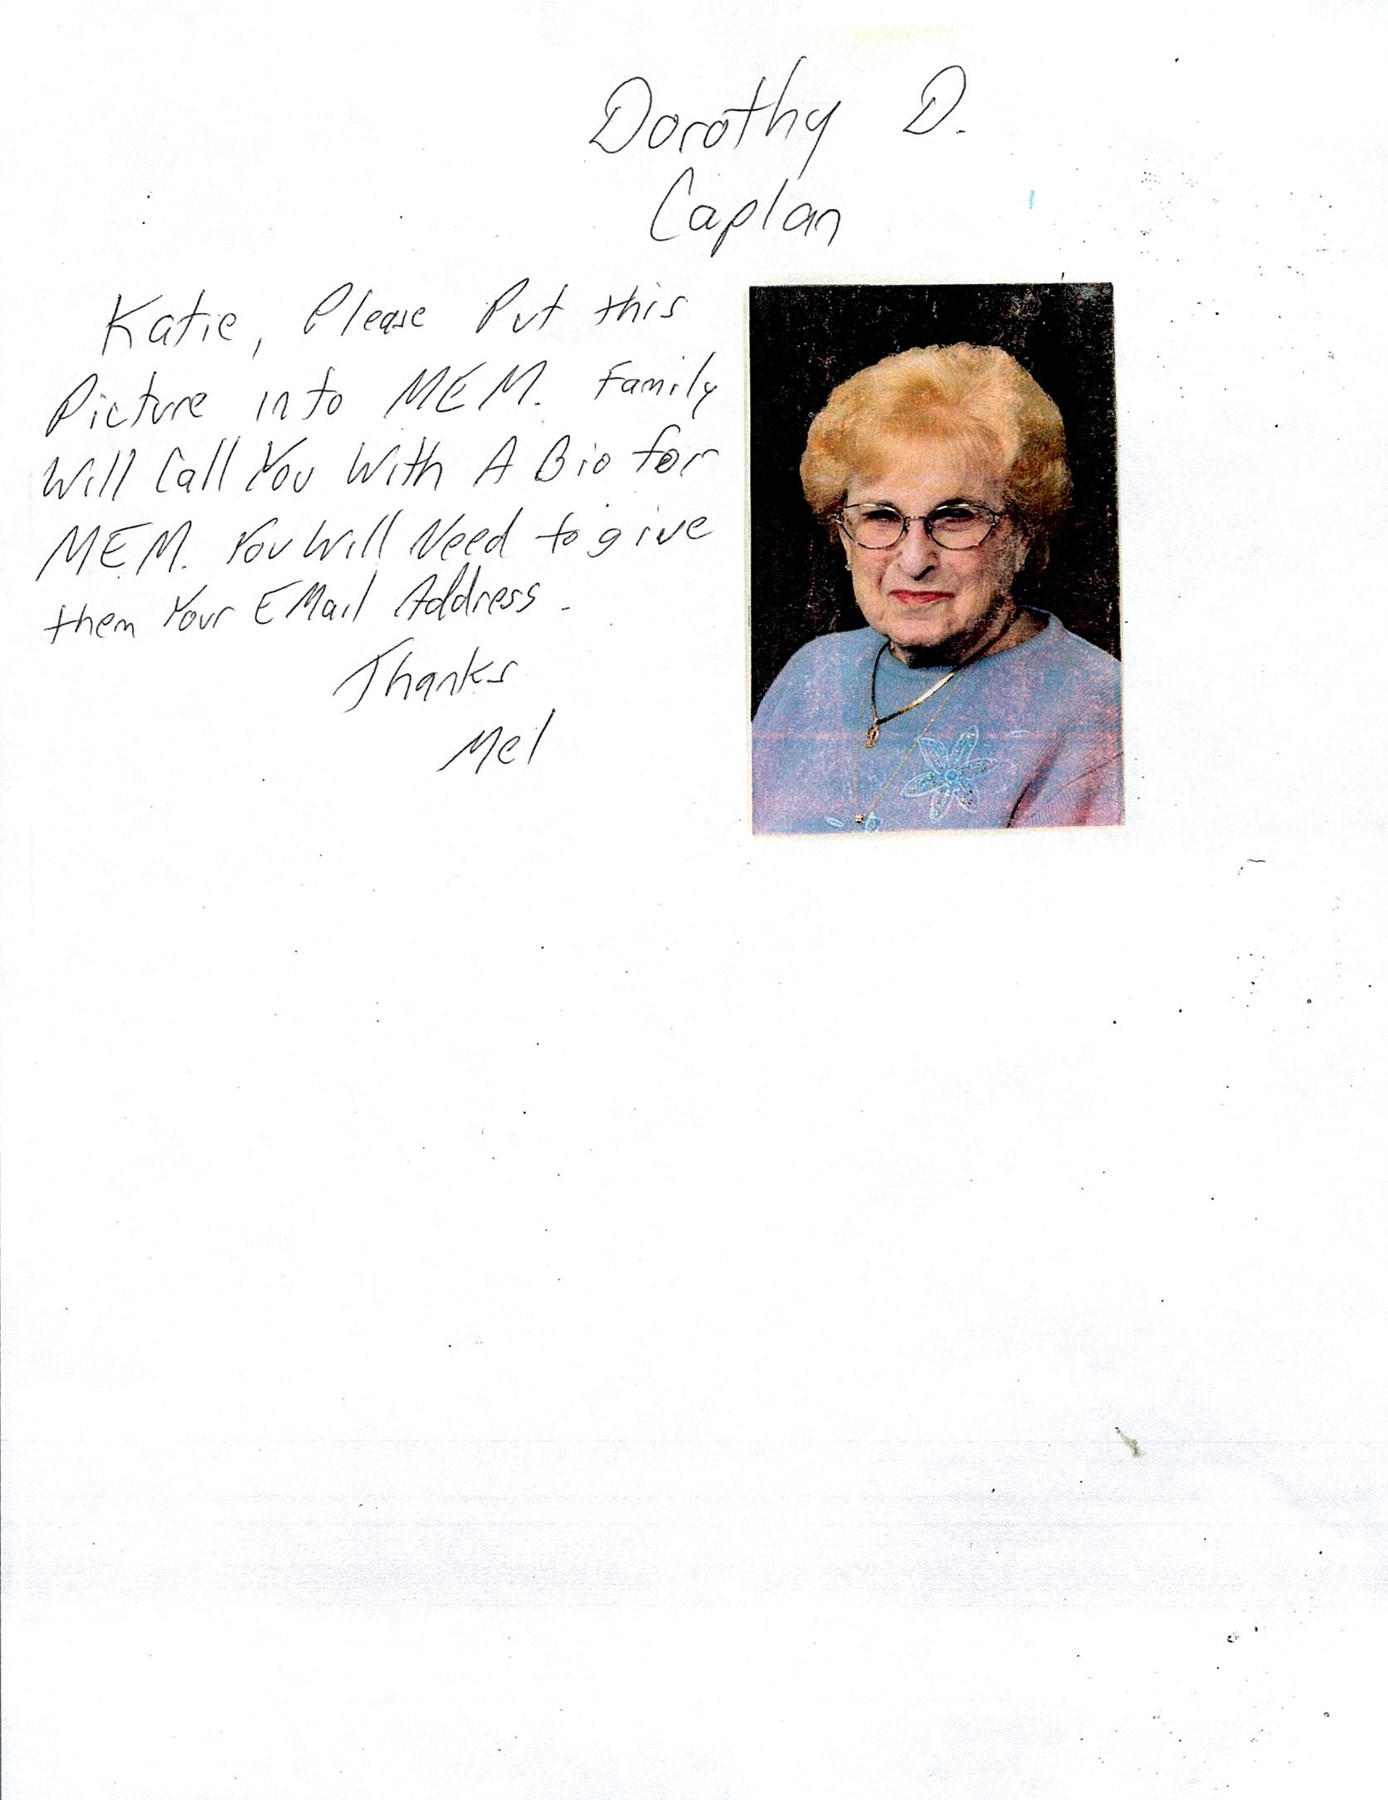 Dorothy D.
Caplan
Katie, Please Put this
Picture into MEM. Family
Will Call You With A Bio for
MEM. You Will Need to give
them Your EMail Address.
Thanks
Mel